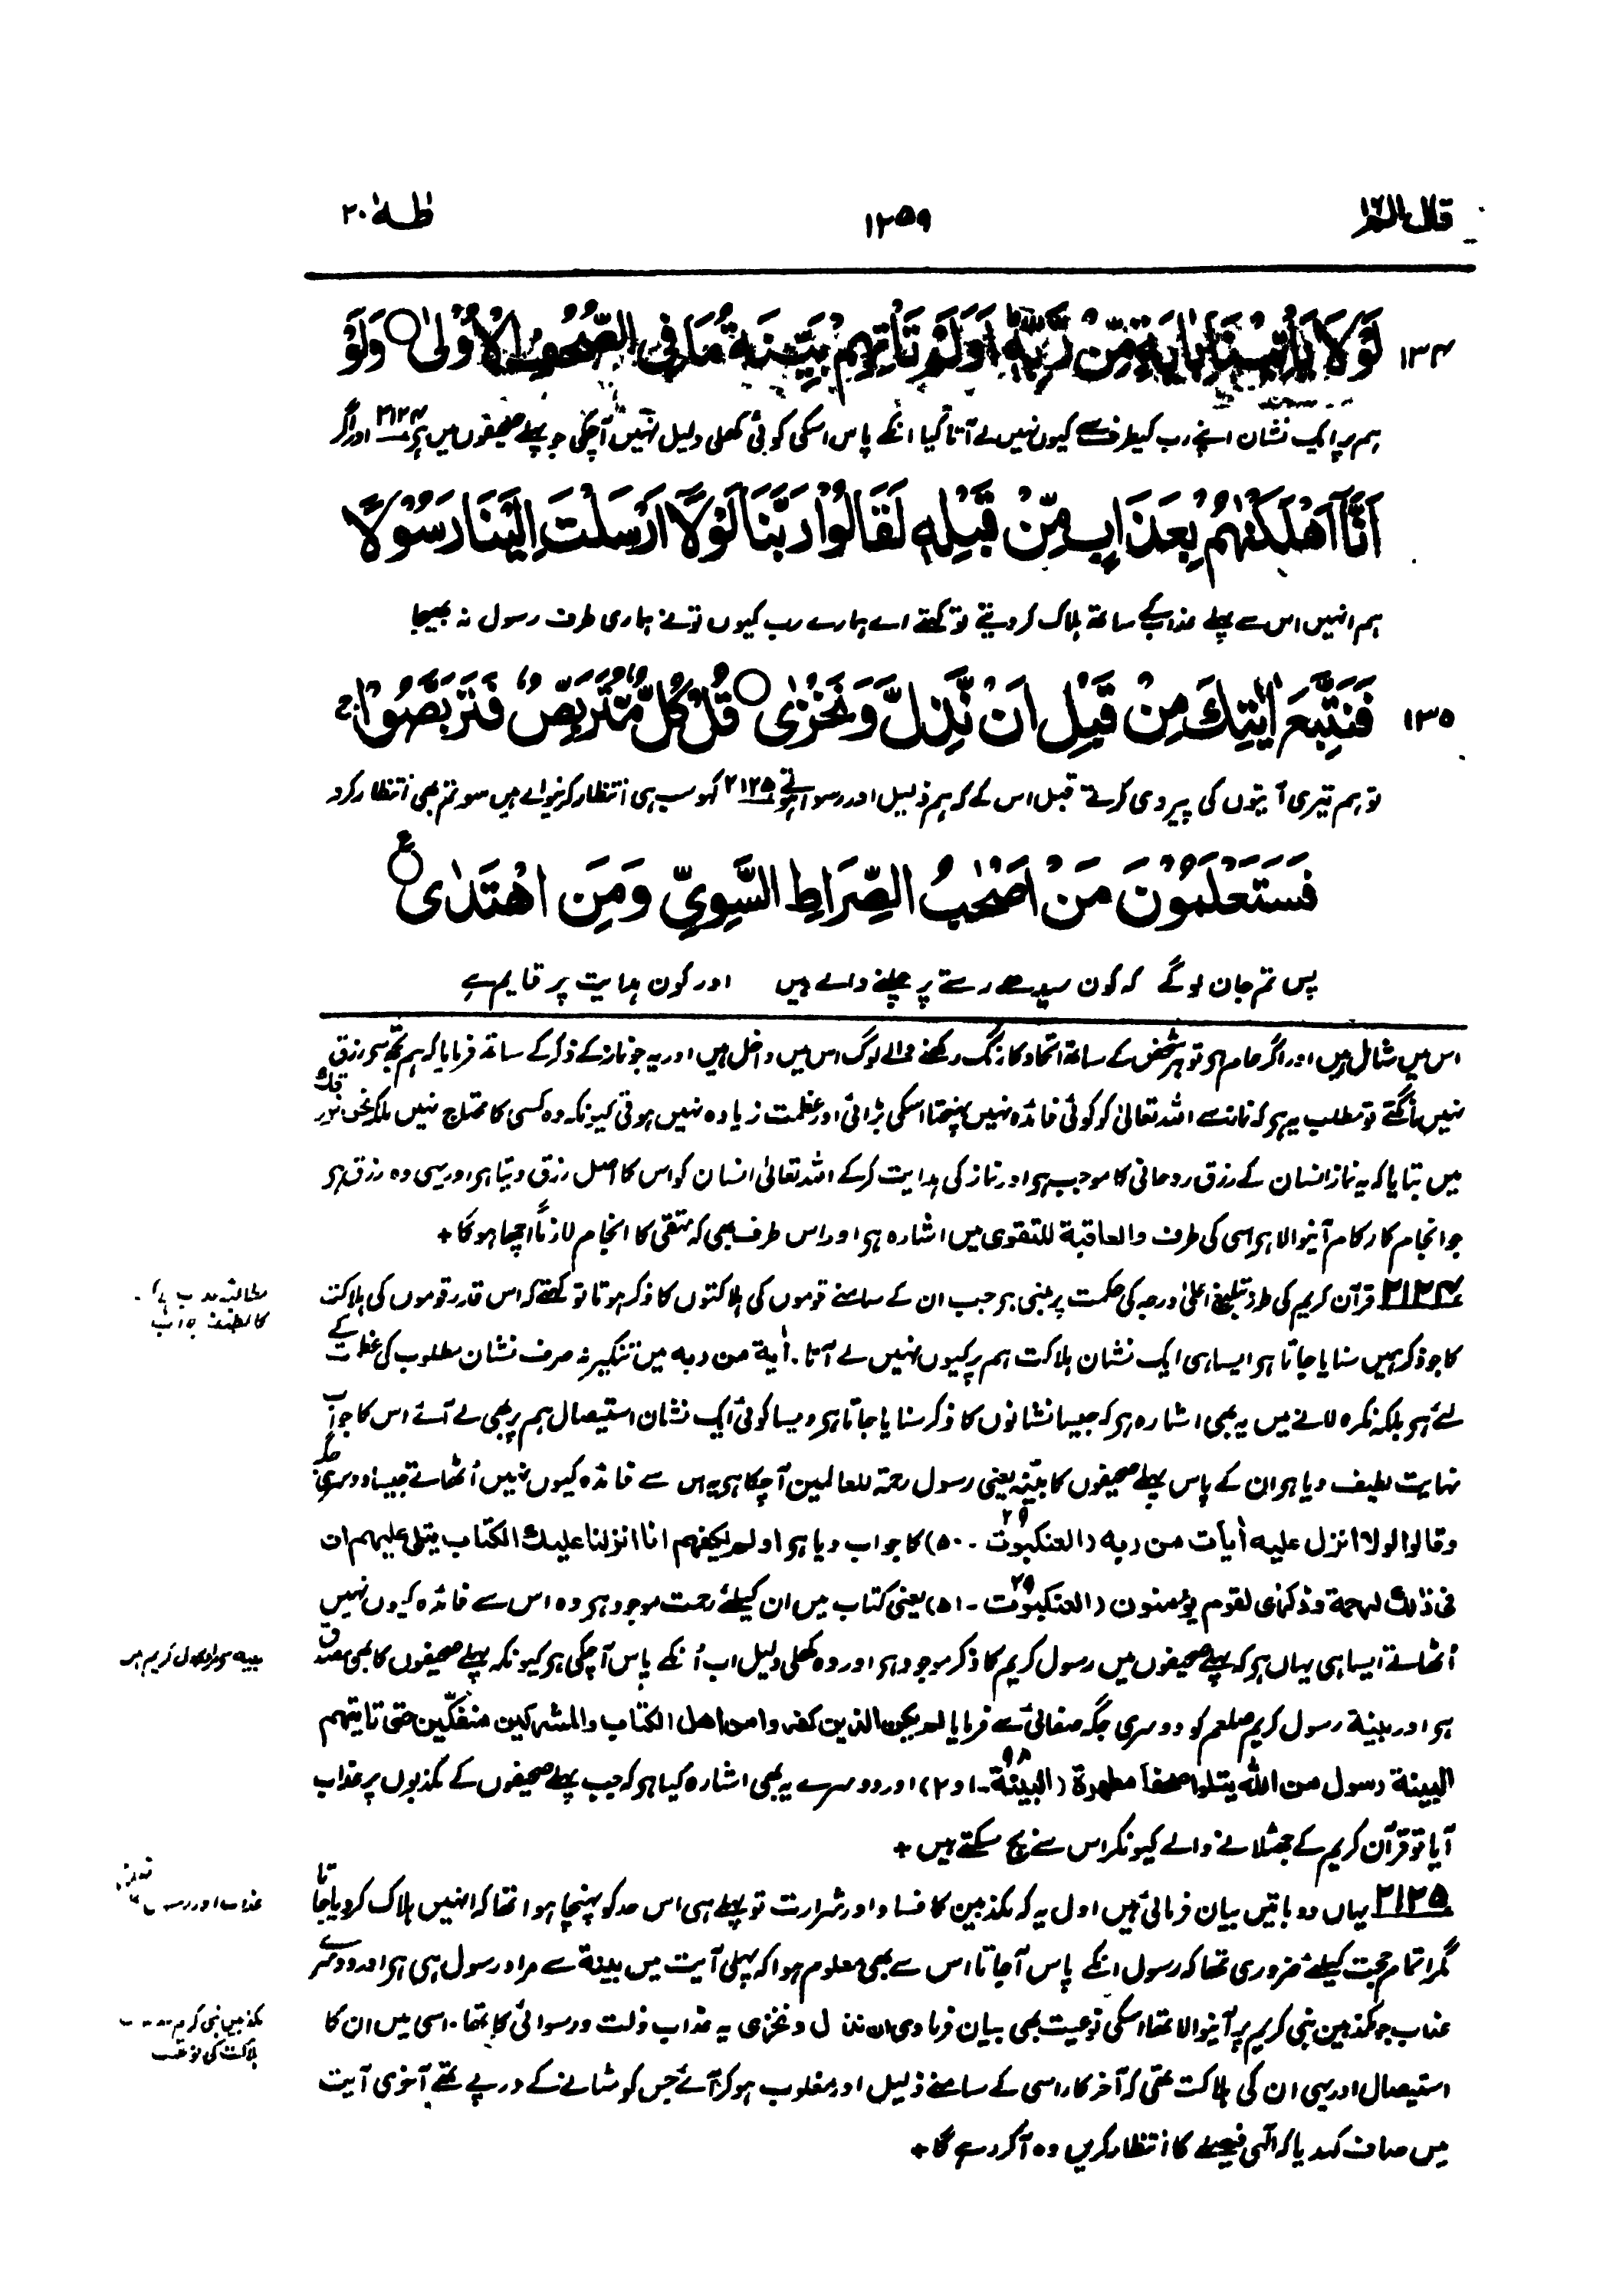 قال الم ١٦
١٢٥٩
طٰهٰ ٢٠
لَوْلَا يَأْتِيْنَا بِاٰيَةٍ مِّنْ رَّبِّهٖ اَوَلَمْ تَأْتِهِمْ بَيِّنَةُ مَا فِي الصُّحُفِ الْاُوْلٰى ○ وَلَوْ
١٣٤
ہم پر ایک نشان اپنے رب کیطرف سے کیوں نہیں لے آتا کیا انکے پاس اسکی کوئی کھلی دلیل نہیں آچکی جو پہلے صحیفوں میں ہے ٢١٢٤ اور اگر
اَنَّآ اَهْلَكْنٰهُمْ بِعَذَابٍ مِّنْ قَبْلِهٖ لَقَالُوْا رَبَّنَا لَوْلَآ اَرْسَلْتَ اِلَيْنَا رَسُوْلًا
ہم انہیں اس سے پہلے عذاب کے ساتھ ہلاک کر دیتے تو کہتے اے ہمارے رب کیوں تونے ہماری طرف رسول نہ بھیجا
فَنَتَّبِعَ اٰيٰتِكَ مِنْ قَبْلِ اَنْ نَّذِلَّ وَنَخْزٰى ○ قُلْ كُلٌّ مُّتَرَبِّصٌ فَتَرَبَّصُوْا ج
١٣٥
تو ہم تیری آیتوں کی پیروی کرتے قبل اس کے کہ ہم ذلیل اور رسوا ہوتے ٢١٢٥ کہو سب ہی انتظار کرنیوالے ہیں سو تم بھی انتظار کرو
فَسَتَعْلَمُوْنَ مَنْ اَصْحٰبُ الصِّرَاطِ السَّوِيِّ وَمَنِ اهْتَدٰى ○ ع
پس تم جان لوگے کہ کون سیدھے رستے پر چلنے والے ہیں اور کون ہدایت پر قایم ہے
اس میں شامل ہیں اور اگر عام ہو تو ہر شخص کے ساتھ اتحاد کا رنگ رکھنے والے لوگ اس میں داخل ہیں اور یہ جو نماز کے ذکر کے ساتھ فرمایا کہ ہم تجھ سے رزق
نہیں مانگتے تو مطلب یہ ہے کہ نماز سے اللہ تعالیٰ کو کوئی فائدہ نہیں پہنچتا اسکی بڑائی اور عظمت زیادہ نہیں ہوتی کیونکہ وہ کسی کا محتاج نہیں بلکہ نحن نرزقك
میں بتایا کہ یہ نماز انسان کے رزق روحانی کا موجب ہے اور نماز کی ہدایت کرکے اللہ تعالیٰ انسان کو اس کا اصل رزق دیتا ہے اور یہی وہ رزق ہے
جو انجام کار کام آنیوالا ہے اسی کی طرف والعاقبة للتقوى میں اشارہ ہے اور اس طرف بھی کہ متقی کا انجام لازماً اچھا ہوگا +
٢١٢٤ قرآن کریم کی طرز تبلیغ اعلیٰ درجہ کی حکمت پر مبنی ہے جب ان کے سامنے قوموں کی ہلاکتوں کا ذکر ہوتا تو کہتے کہ اس قدر قوموں کی ہلاکت
کا جو ذکر ہمیں سنایا جاتا ہے ایسا ہی ایک نشان ہلاکت ہم پر کیوں نہیں لے آتا . اٰية من ربه میں تنکیر نہ صرف نشان مطلوب کی عظمت کے
لئے ہے بلکہ نکرہ لانے میں یہ بھی اشارہ ہے کہ جیسا نشانوں کا ذکر سنایا جاتا ہے ویسا کوئی ایک نشان استیصال ہم پر بھی لے آئے اس کا جواب
نہایت لطیف دیا ہے ان کے پاس پہلے صحیفوں کا بیّنہ یعنی رسول رحمة للعالمین آچکا ہے یہ اس سے فائدہ کیوں نہیں اُٹھاتے جیسا دوسری جگہ
وقالوا لولا انزل عليه اٰيات من ربه (العنكبوت ٢٩ ـ ٥٠) کا جواب دیا ہے اولم يكفهم انا انزلنا عليك الكتاب يتلى عليهم ان
فى ذٰلك لرحمة وذكرٰى لقوم يؤمنون (العنكبوت ٢٩ ـ ٥١) یعنی کتاب میں ان کیلئے رحمت موجود ہے وہ اس سے فائدہ کیوں نہیں
اُٹھاتے ایسا ہی یہاں ہے کہ پہلے صحیفوں میں رسول کریم کا ذکر موجود ہے اور وہ کھلی دلیل اب اُنکے پاس آچکی ہے کیونکہ پہلے صحیفوں کا بھی مصدق
ہے اور بينة رسول کریم صلعم کو دوسری جگہ صفائی سے فرمایا لم يكن الذين كفروا من اهل الكتاب والمشركين منفكّين حتى تاتيهم
البينة رسول من الله يتلوا صحفا مطهرة (البينة ٩٨ ـ ١ و ٢) اور دوسرے یہ بھی اشارہ کیا ہے کہ جب پہلے صحیفوں کے مکذبوں پر عذاب
آیا تو قرآن کریم کے جھٹلانے والے کیونکر اس سے بچ سکتے ہیں +
٢١٢٥ یہاں دو باتیں بیان فرمائی ہیں اول یہ کہ مکذبین کا فساد اور شرارت تو پہلے ہی اس حد کو پہنچا ہوا تھا کہ انہیں ہلاک کر دیا جاتا
مگر اتمام حجت کیلئے ضروری تھا کہ رسول انکے پاس آجاتا اس سے بھی معلوم ہوا کہ پہلی آیت میں بينة سے مراد رسول ہی ہے اور دوسرے
عذاب جو مکذبین نبی کریم پر آنیوالا تھا اسکی نوعیت بھی بیان فرما دی ان نذل ونخزى یہ عذاب ذلت و رسوائی کا تھا . اسی میں ان کا
استیصال اور یہی ان کی ہلاکت تھی کہ آخر کار اسی کے سامنے ذلیل اور مغلوب ہو کر آئے جس کو مٹانے کے درپے تھے آخری آیت
میں صاف کہدیا کہ الٰہی فیصلے کا انتظار کریں وہ آکر رہے گا +
بينة سے مراد رسول کریم ہے
عذاب اور رسول
مکذبین نبی کریم
ہلاکت کی نوعیت